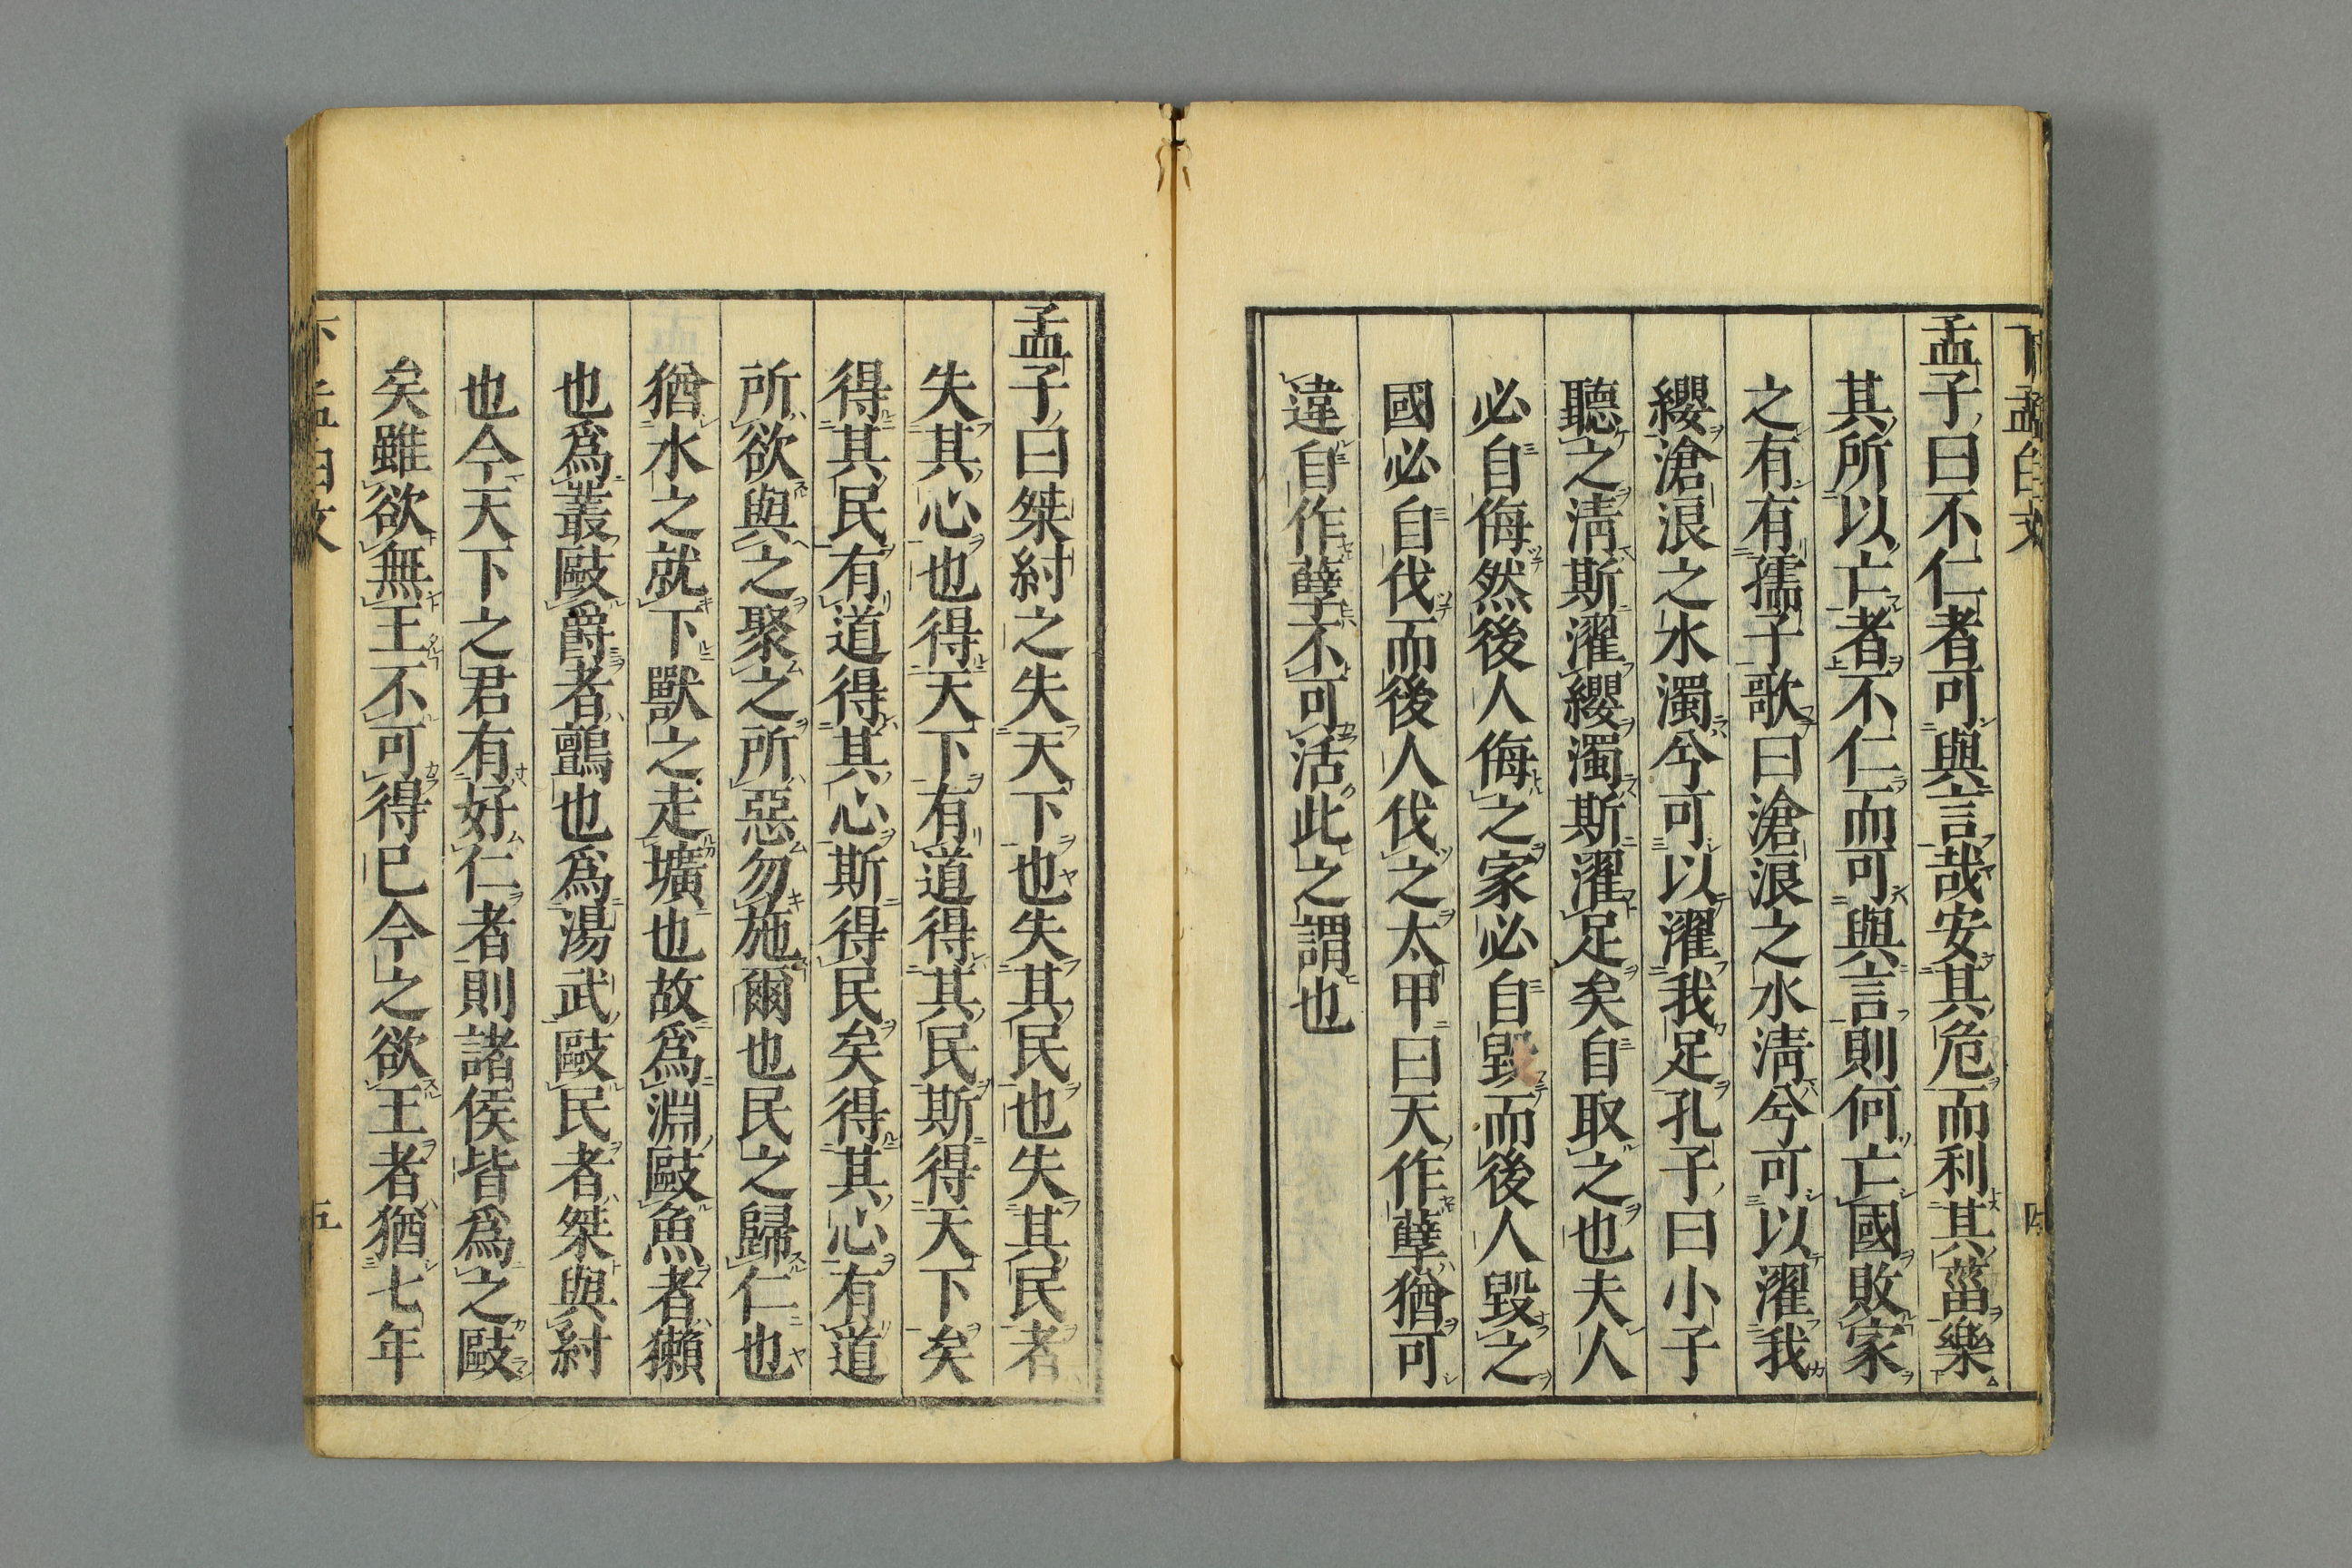 下孟白文
孟子曰不仁者可與言哉安其危而利其菑樂
其所以亡者不仁而可與言則何亡國敗家
之有有孺子歌曰滄浪之水淸兮可以濯我
纓滄浪之水濁兮可以濯我足孔子曰小子
聽之淸斯濯纓濁斯濯足矣自取之也夫人
必自侮然後人侮之家必自毀而後人毀之
國必自伐而後人伐之太甲曰天作孽猶可
違自作孽不可活此之謂也
孟子曰桀紂之失天下也失其民也失其民者
失其心也得天下有道得其民斯得天下矣
得其民有道得其心斯得民矣得其心有道
所欲與之聚之所惡勿施爾也民之歸仁也
猶水之就下獸之走壙也故爲淵敺魚者獺
也爲叢敺爵者鸇也爲湯武敺民者桀與紂
也今天下之君有好仁者則諸侯皆爲之敺
矣雖欲無王不可得已今之欲王者猶七年
下孟白文 五